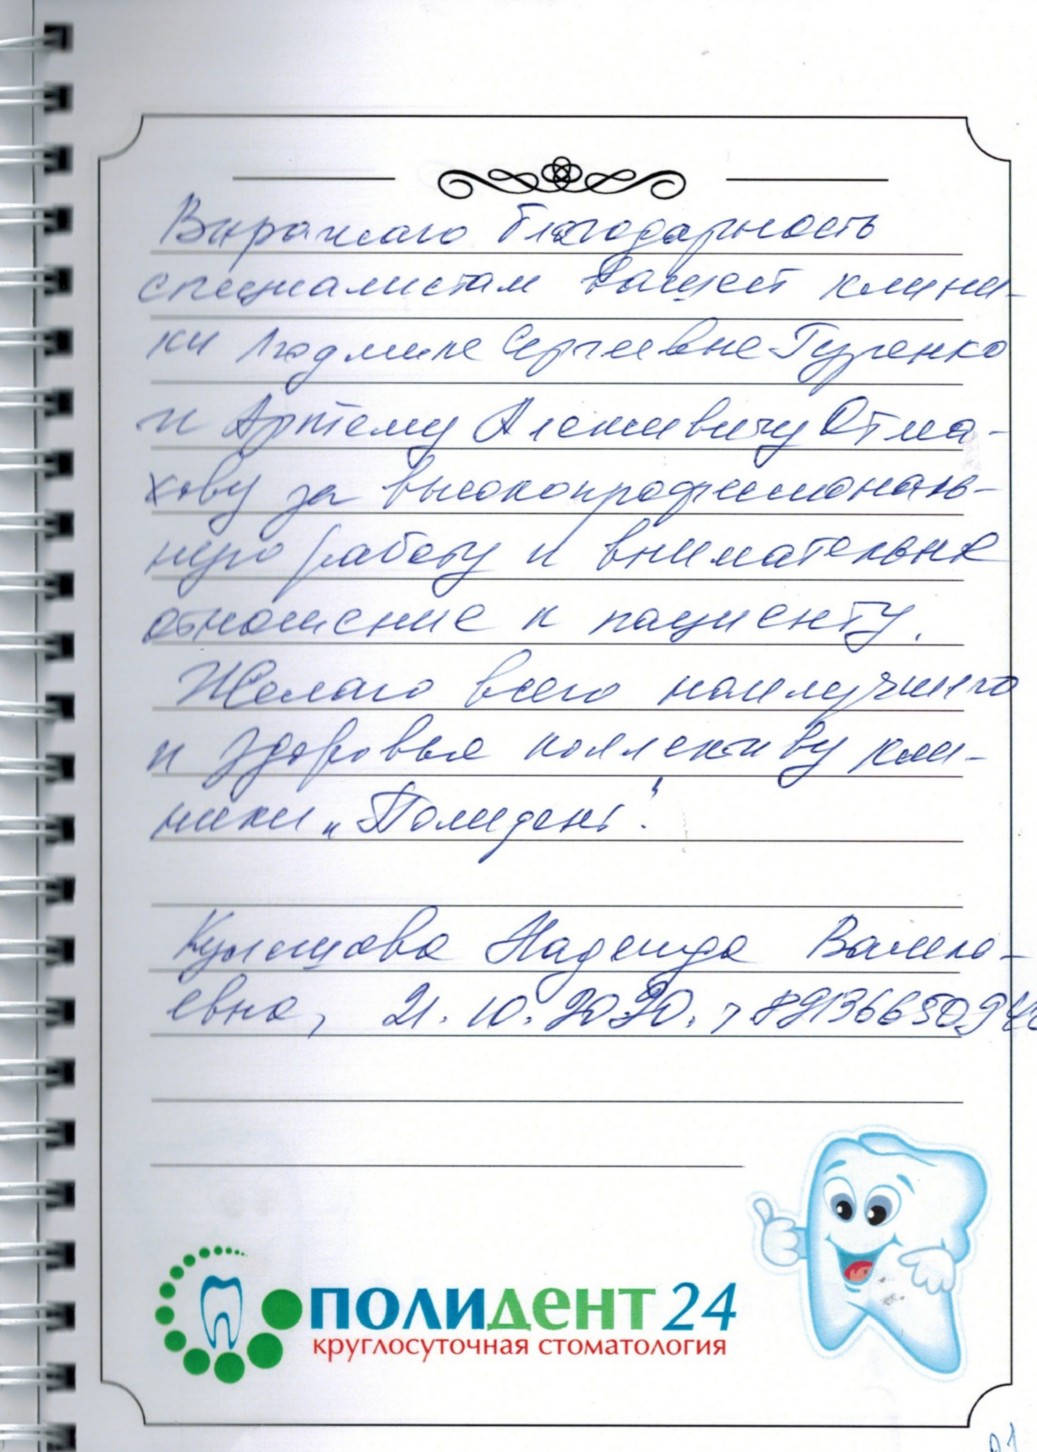 Выражаю благодарность
специалистам Вашей клини-
ки Людмиле Сергеевне Гузенко
и Артёму Алексеевичу Отма-
хову за высокопрофессиональ-
ную работу и внимательное
отношение к пациенту.
Желаю всего наилучшего
и здоровья коллективу кли-
ники „Полидент".
Кулешова Надежда
евна, 21.10.2020.
ПОЛИДЕНТ 24
круглосуточная стоматология